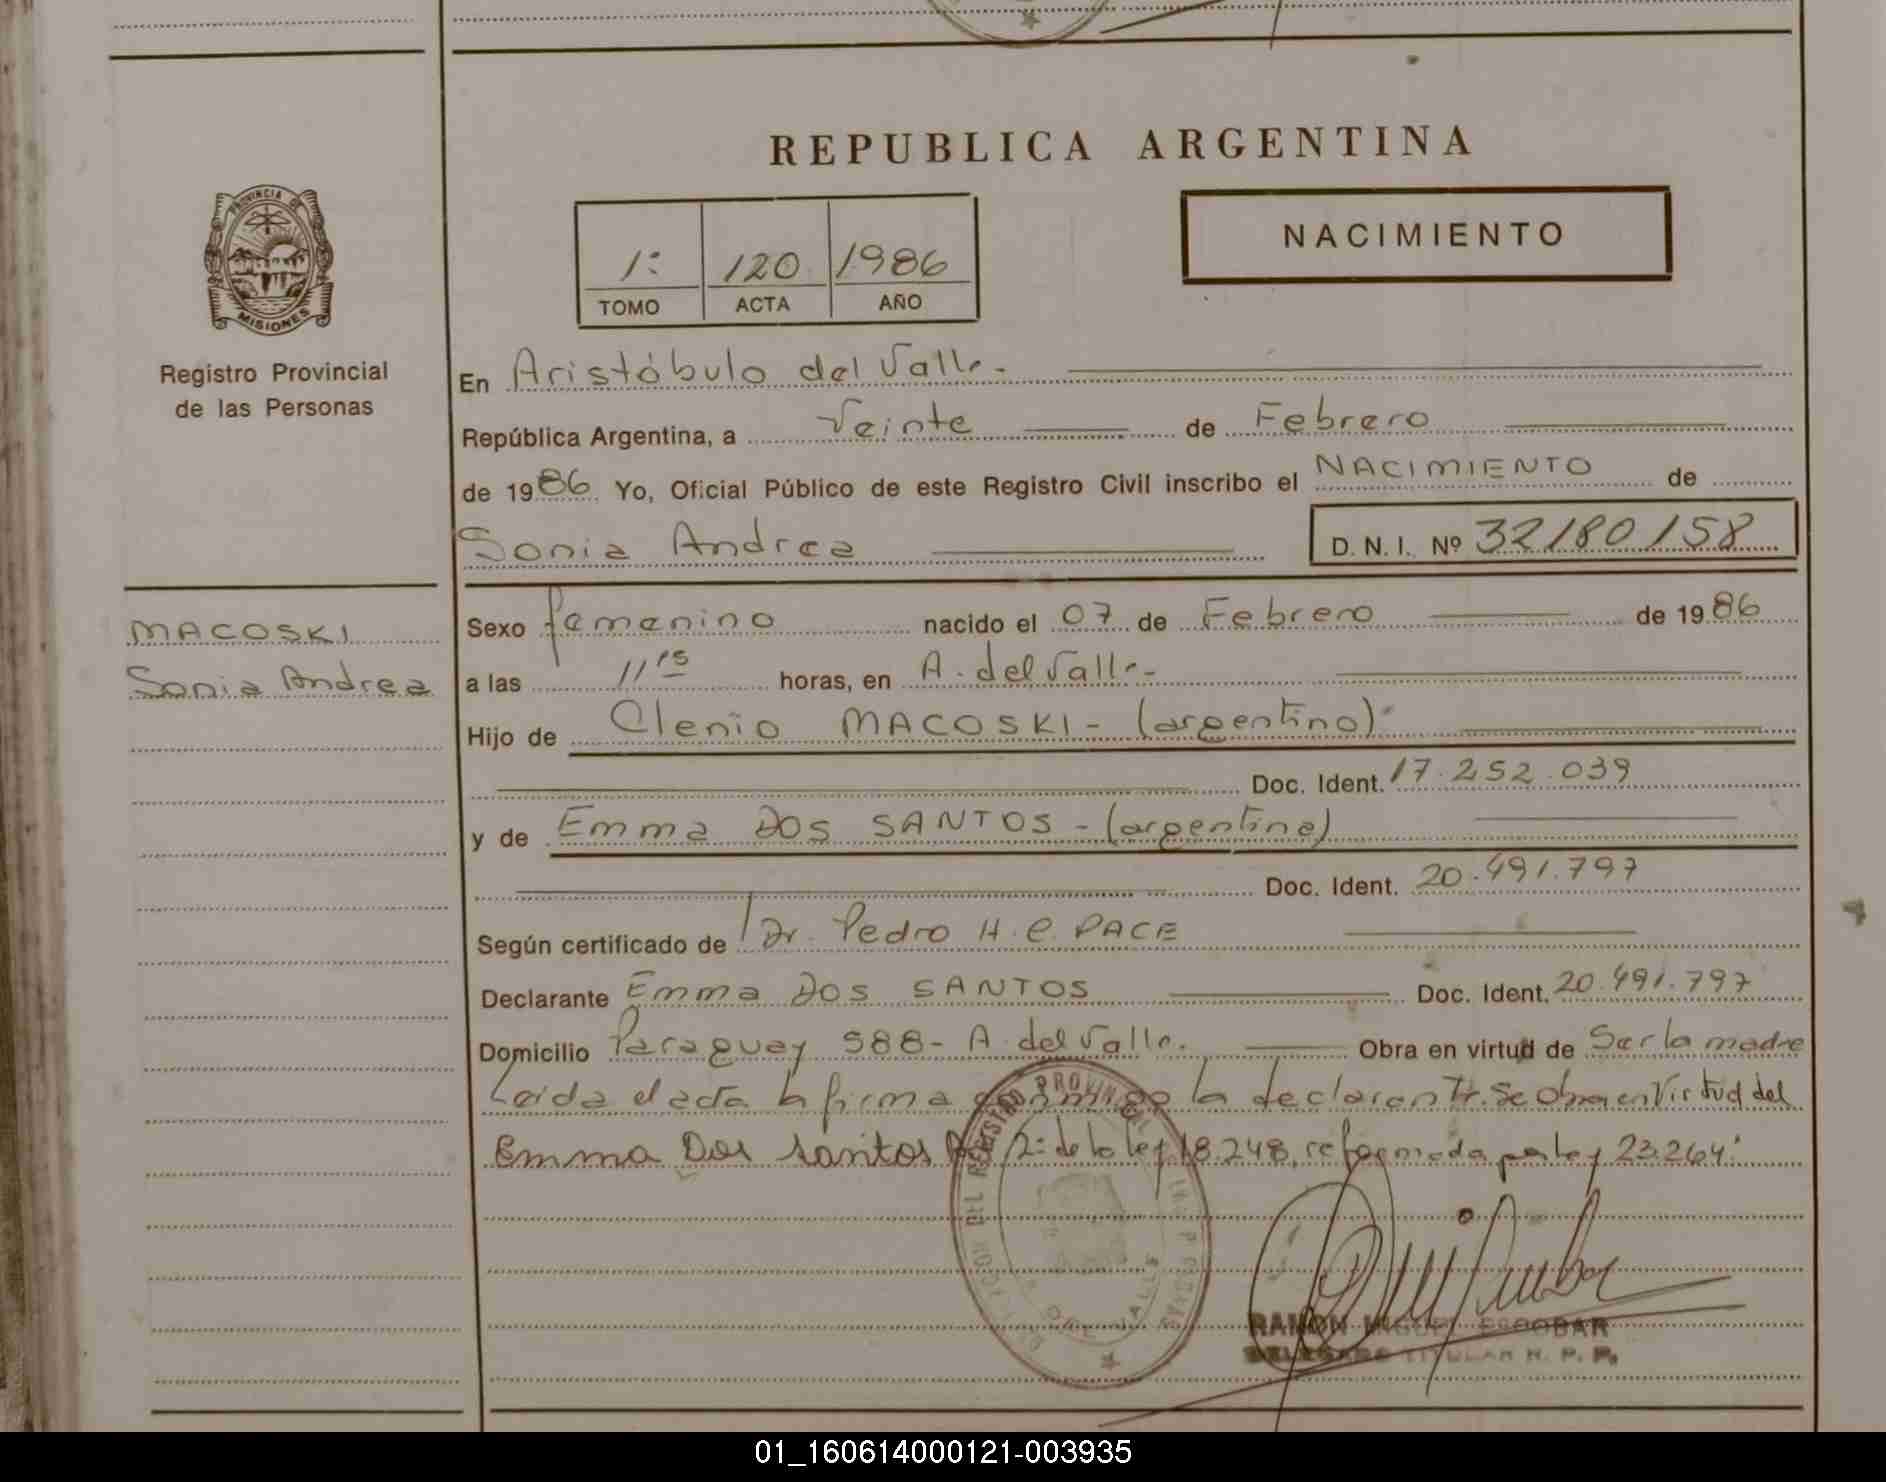 REPUBLICA ARGENTINA
PROVINCIA DE
MISIONES
Registro Provincial
de las Personas
1º 120 1986
TOMO ACTA AÑO
NACIMIENTO
En Aristóbulo del Valle.
República Argentina, a Veinte de Febrero
de 1986 Yo, Oficial Público de este Registro Civil inscribo el NACIMIENTO de
Sonia Andrea D. N. I. Nº 32180158
MACOSKI
Sonia Andrea
Sexo femenino nacido el 07 de Febrero de 1986
a las 11 15 horas, en A. del Valle-
Hijo de Clenio MACOSKI - (argentino)
Doc. Ident. 17.252.039
y de Emma DOS SANTOS - (argentina)
Doc. Ident. 20.491.797
Según certificado de Dr. Pedro H. C. PACE
Declarante Emma DOS SANTOS Doc. Ident. 20.491.797
Domicilio Paraguay 588- A. del Valle. Obra en virtud de Ser la madre
Leída el acta la firma conmigo la declarante. Se Obra en Virtud del
Emma Dos Santos 2º de la ley 18.248, reformada por ley 23.264.
RAMON MIGUEL ESCOBAR
DELEGADO TITULAR R. P. P.
01_160614000121-003935